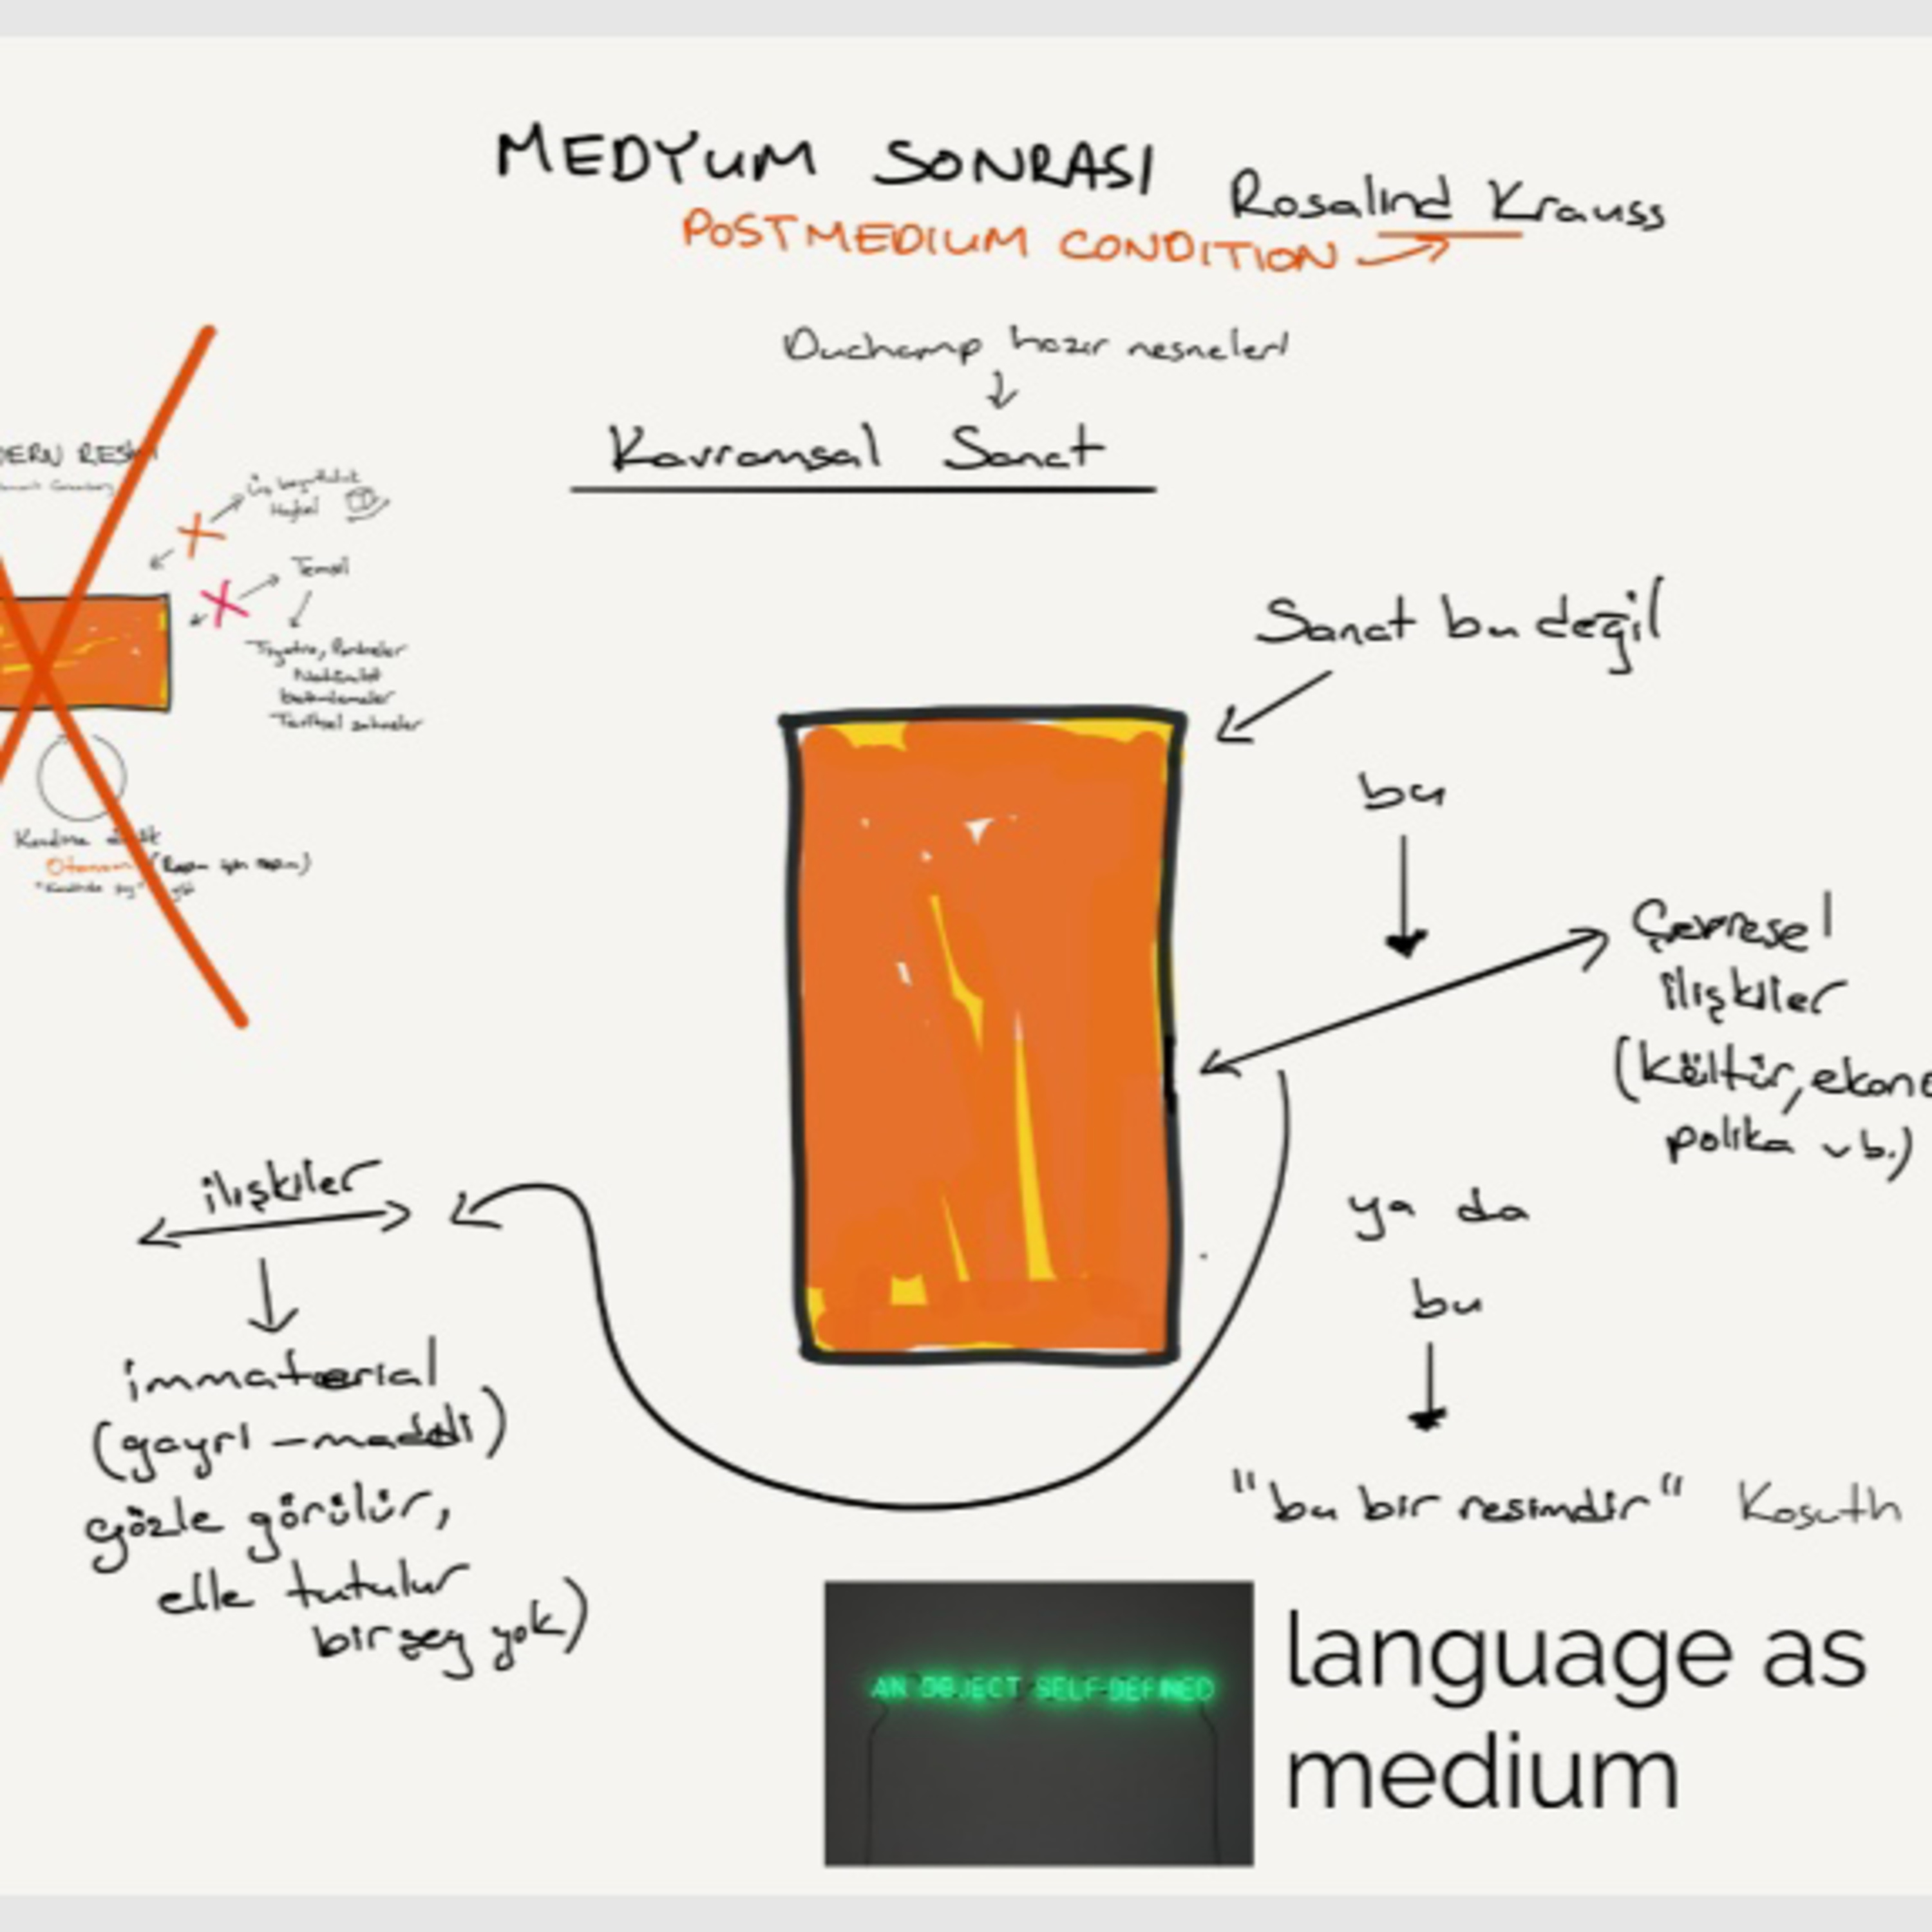 MEDYUM SONRASI
Rosalind Krauss
POSTMEDIUM CONDITION
Duchamp hazır nesneleri
Kavramsal Sanat
DERN RES
Üç boyutluluk
Heykel
Temsil
Tiyatro, Portreler
betimlemeler
Tarihsel sahneler
Kendine
Otonom (Resim için resim)
Sanat bu değil
bu
Çevresel
ilişkiler
(kültür, ekono
polika vb.)
ya da
bu
"bu bir resimdir" Kosuth
ilişkiler
immaterial
(gayri-maddi)
gözle görülür,
elle tutulur
birşey yok)
AN OBJECT SELF-DEFINED
language as
medium